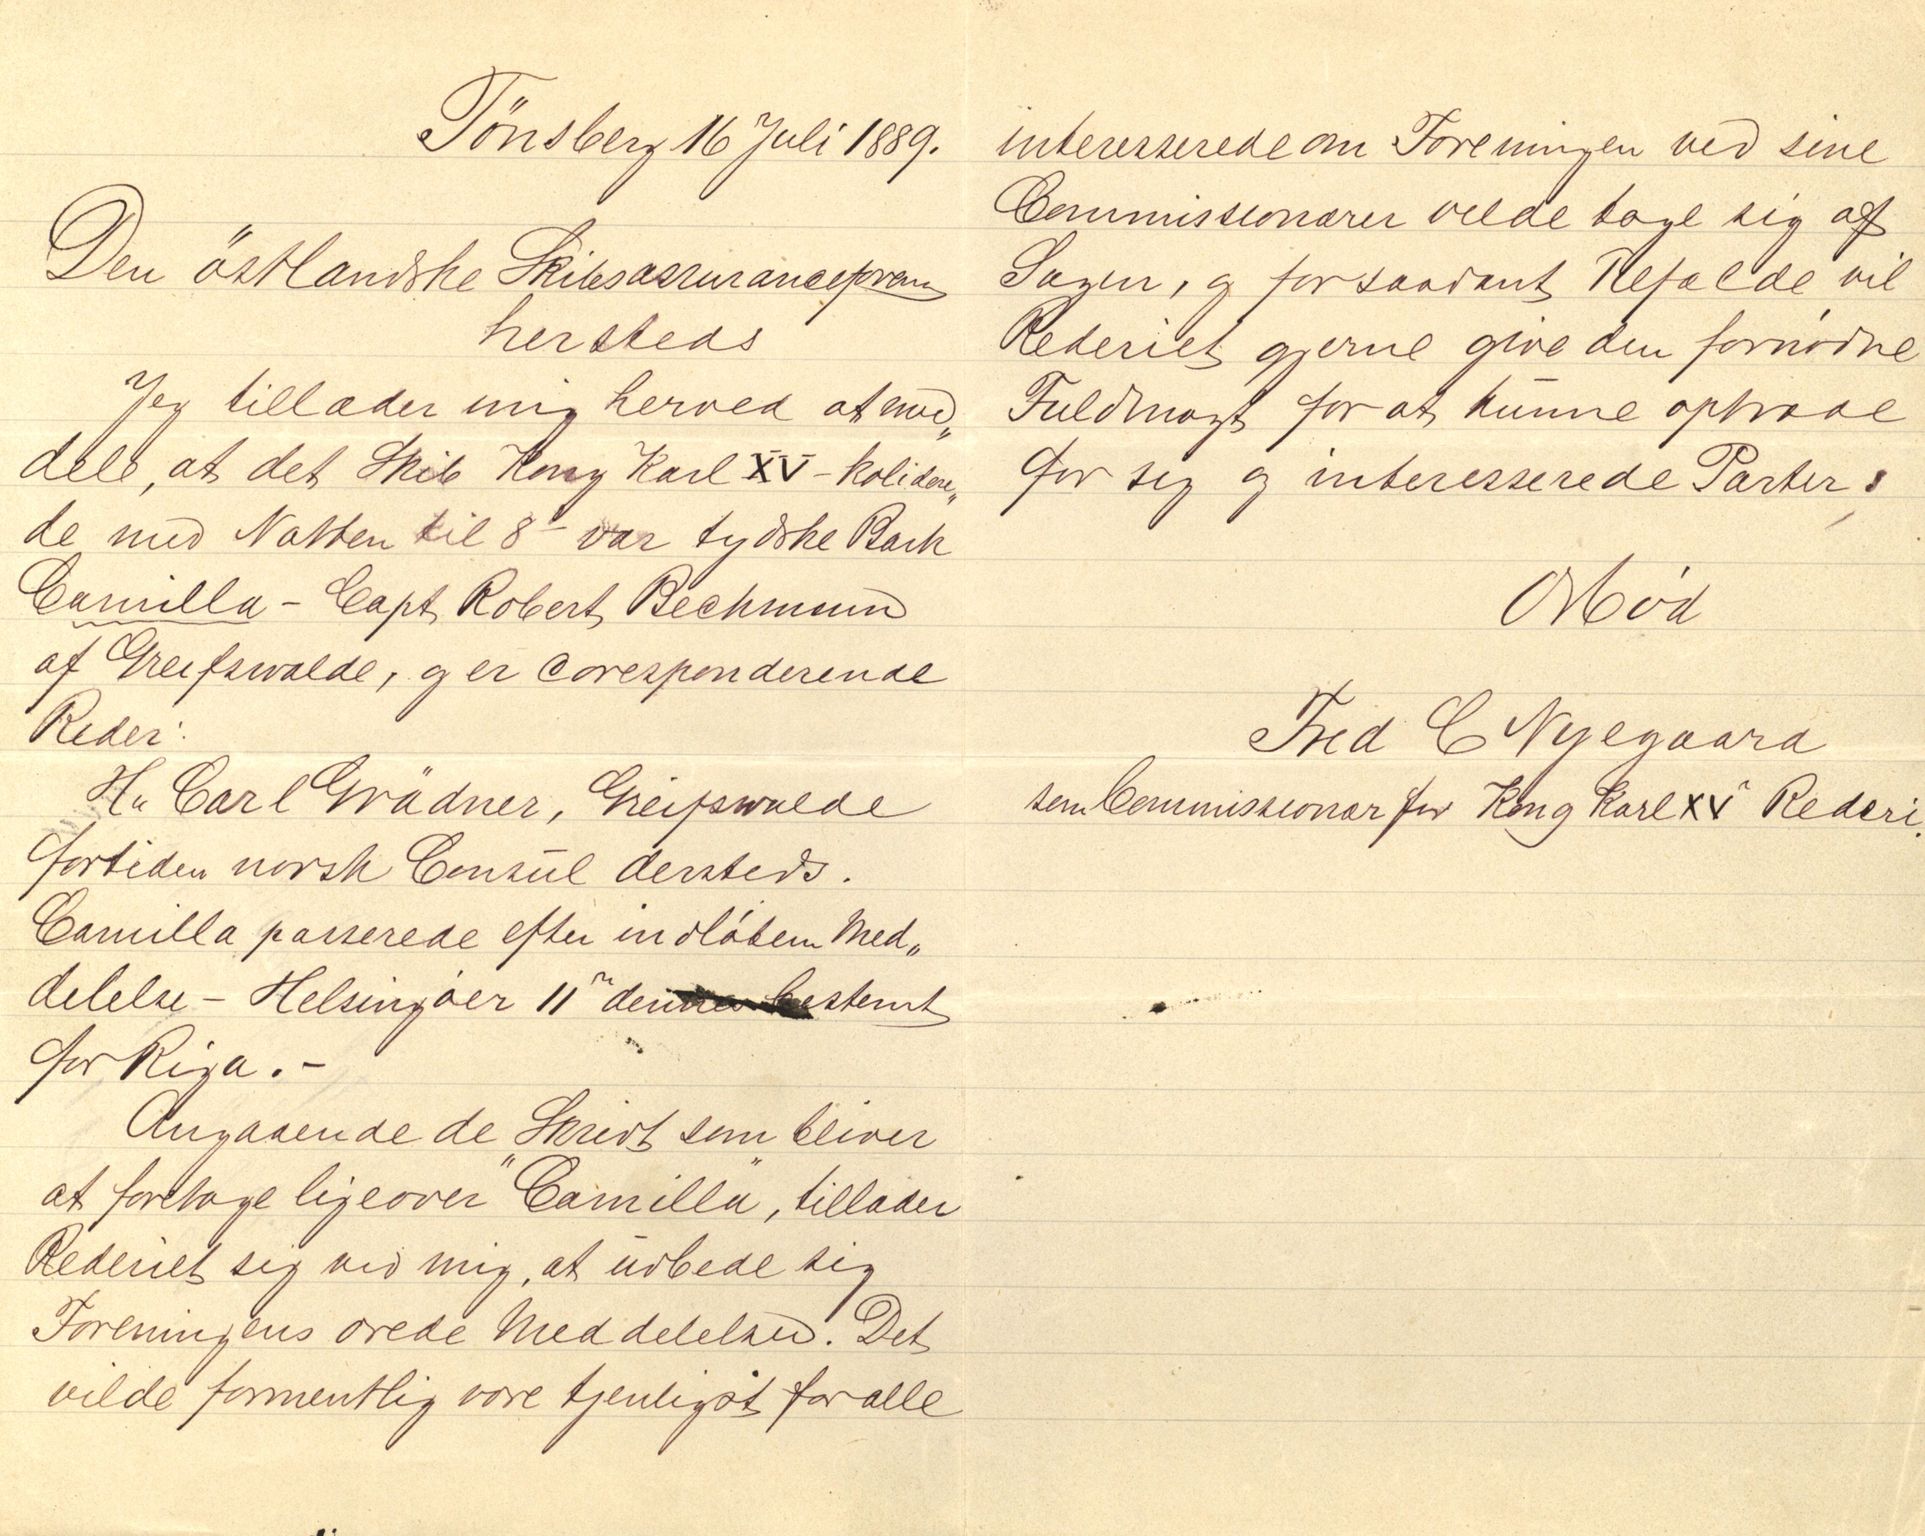 Tönsberg 16 Juli 1889.
Den östlandske Skibsassuranceforen
hersteds
Jeg tillader mig herved at med„
dele, at det Skib Kong Karl XV – kolidere„
de med Natten til 8– var tydske Bark
Camilla – Capt Robert Beckmann
af Greifswalde, og er Coresponderende
Reder:
Hr Carl Grädner, Greifswalde
fortiden norsk Consul dersteds.
Camilla passerede efter indløben Med„
delelse – Helsingøer 11te dennes bestemt
for Riga. –
Angaaende de Skridt som bliver
at foretage ligeover "Camilla", tillader
Rederiet sig ved mig, at udbede sig
Foreningens ærede Meddelelser. Det
vilde formentlig være tjenligst for alle
interesserede om Foreningen ved sine
Commissionærer vilde tage sig af
Sagen, og for saadant Tilfælde vil
Rederiet gjerne give den fornødne
Fuldmagt for at kunne optræde
for sig og interesserede Parter.
Fred C Nyegaard
som Commissionær for Kong Karl XVs Rederi.